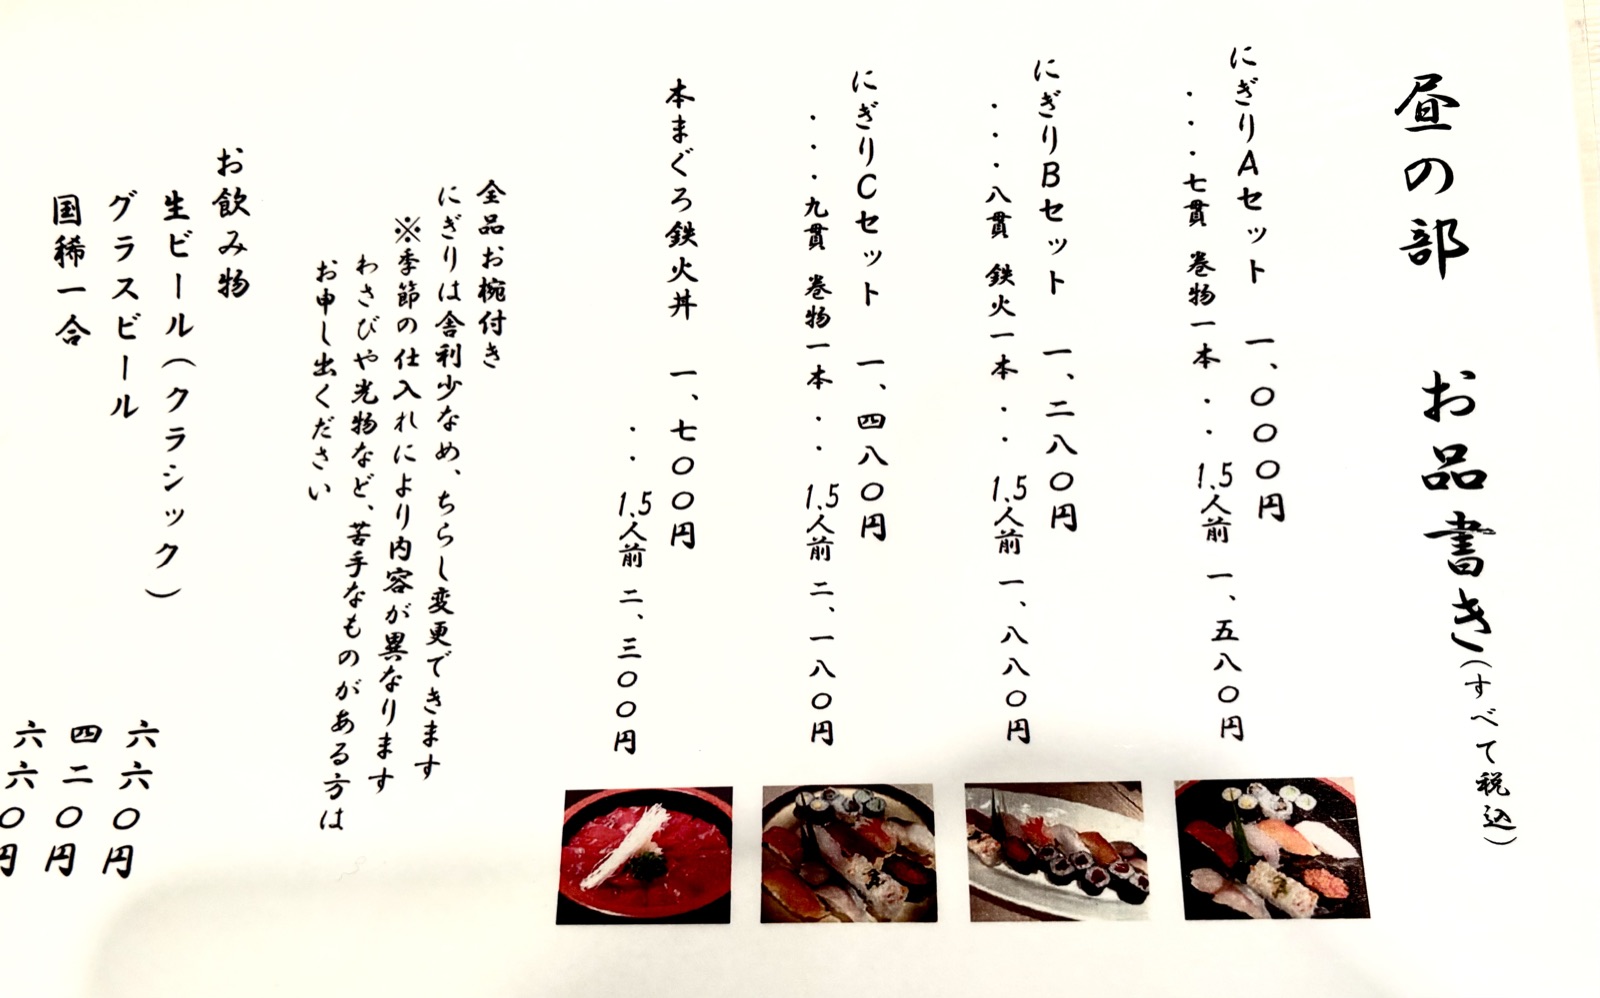 昼の部 お品書き(すべて税込)
にぎりAセット 一、〇〇〇円
・・・七貫 巻物一本・・1.5人前 一、五八〇円
にぎりBセット 一、二八〇円
・・・八貫 鉄火一本・・1.5人前 一、八八〇円
にぎりCセット 一、四八〇円
・・・九貫 巻物一本・・1.5人前 二、一八〇円
本まぐろ鉄火丼 一、七〇〇円
・・1.5人前 二、三〇〇円
全品お椀付き
にぎりは舎利少なめ、ちらし変更できます
※季節の仕入れにより内容が異なります
わさびや光物など、苦手なものがある方は
お申し出ください
お飲み物
生ビール(クラシック) 六六〇円
グラスビール 四二〇円
国稀一合 六六〇円